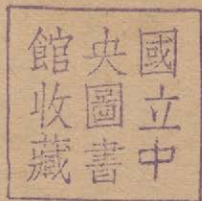 國立中
央圖書
館收藏